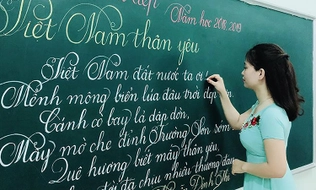 Năm học 2018-2019
Việt Nam thân yêu
Việt Nam đất nước ta ơi
Mênh mông biển lúa đâu trời đẹp
Cánh cò bay lả dập dờn,
Mây mờ che đỉnh Trường Sơn sớm
Quê hương biết mấy thân yêu,
đời đã chịu nhiều thương đau